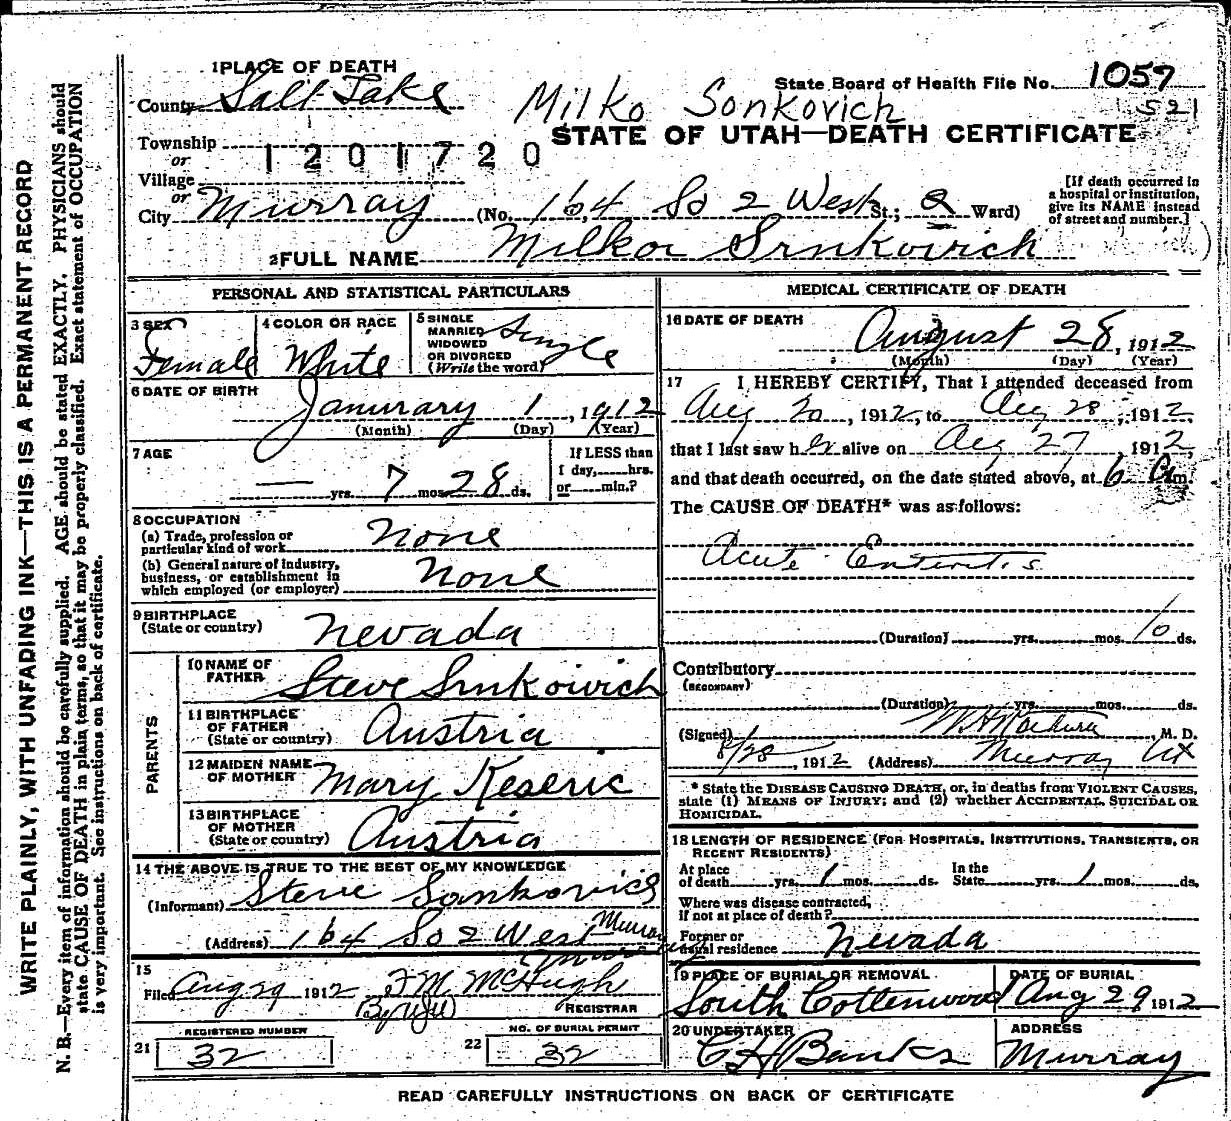 1 PLACE OF DEATH
County Salt Lake
Milko Sonkovich
State Board of Health File No. 1057
521
STATE OF UTAH—DEATH CERTIFICATE
Township
or
1201720
Village
or
City Murray (No. 164 So 2 West St.; 2 Ward)
[If death occurred in
a hospital or institution,
give its NAME instead
of street and number.]
2 FULL NAME Milkor Srnkovich
PERSONAL AND STATISTICAL PARTICULARS
3 SEX
Female
4 COLOR OR RACE
White
5 SINGLE
MARRIED
WIDOWED
OR DIVORCED
(Write the word)
Single
6 DATE OF BIRTH
Janurary 1, 1912
(Month) (Day) (Year)
7 AGE
— yrs. 7 mos. 28 ds.
If LESS than
1 day, hrs.
or min.?
8 OCCUPATION
(a) Trade, profession or
particular kind of work None
(b) General nature of industry,
business, or establishment in
which employed (or employer) None
9 BIRTHPLACE
(State or country) Nevada
PARENTS
10 NAME OF
FATHER Steve Srnkoivich
11 BIRTHPLACE
OF FATHER
(State or country) Austria
12 MAIDEN NAME
OF MOTHER Mary Keseric
13 BIRTHPLACE
OF MOTHER
(State or country) Austria
14 THE ABOVE IS TRUE TO THE BEST OF MY KNOWLEDGE
(Informant) Steve Sonkovich
(Address) 164 So 2 West Murray
15
Filed Aug 29 1912 F.M. McHugh
REGISTRAR
REGISTERED NUMBER
21 32
NO. OF BURIAL PERMIT
22 32
MEDICAL CERTIFICATE OF DEATH
16 DATE OF DEATH
August 28, 1912
(Month) (Day) (Year)
17 I HEREBY CERTIFY, That I attended deceased from
Aug 20, 1912, to Aug 28, 1912,
that I last saw her alive on Aug 27, 1912,
and that death occurred, on the date stated above, at 6 am.
The CAUSE OF DEATH* was as follows:
Acute Enteritis
(Duration) yrs. mos. 10 ds.
Contributory
(SECONDARY)
(Duration) yrs. mos. ds.
(Signed) , M. D.
8/28, 1912 (Address) Murray Ut
* State the DISEASE CAUSING DEATH, or, in deaths from VIOLENT CAUSES,
state (1) MEANS OF INJURY; and (2) whether ACCIDENTAL, SUICIDAL OR
HOMICIDAL.
18 LENGTH OF RESIDENCE (FOR HOSPITALS, INSTITUTIONS, TRANSIENTS, OR
RECENT RESIDENTS)
At place
of death yrs. 1 mos. ds.
In the
State yrs. 1 mos. ds.
Where was disease contracted,
if not at place of death?
Former or
usual residence Nevada
19 PLACE OF BURIAL OR REMOVAL
South Cottenwood
DATE OF BURIAL
Aug 29 1912
20 UNDERTAKER
C H Banks
ADDRESS
Murray
READ CAREFULLY INSTRUCTIONS ON BACK OF CERTIFICATE
WRITE PLAINLY, WITH UNFADING INK—THIS IS A PERMANENT RECORD
N. B.—Every item of information should be carefully supplied. AGE should be stated EXACTLY. PHYSICIANS should
state CAUSE OF DEATH in plain terms, so that it may be properly classified. Exact statement of OCCUPATION
is very important. See instructions on back of certificate.